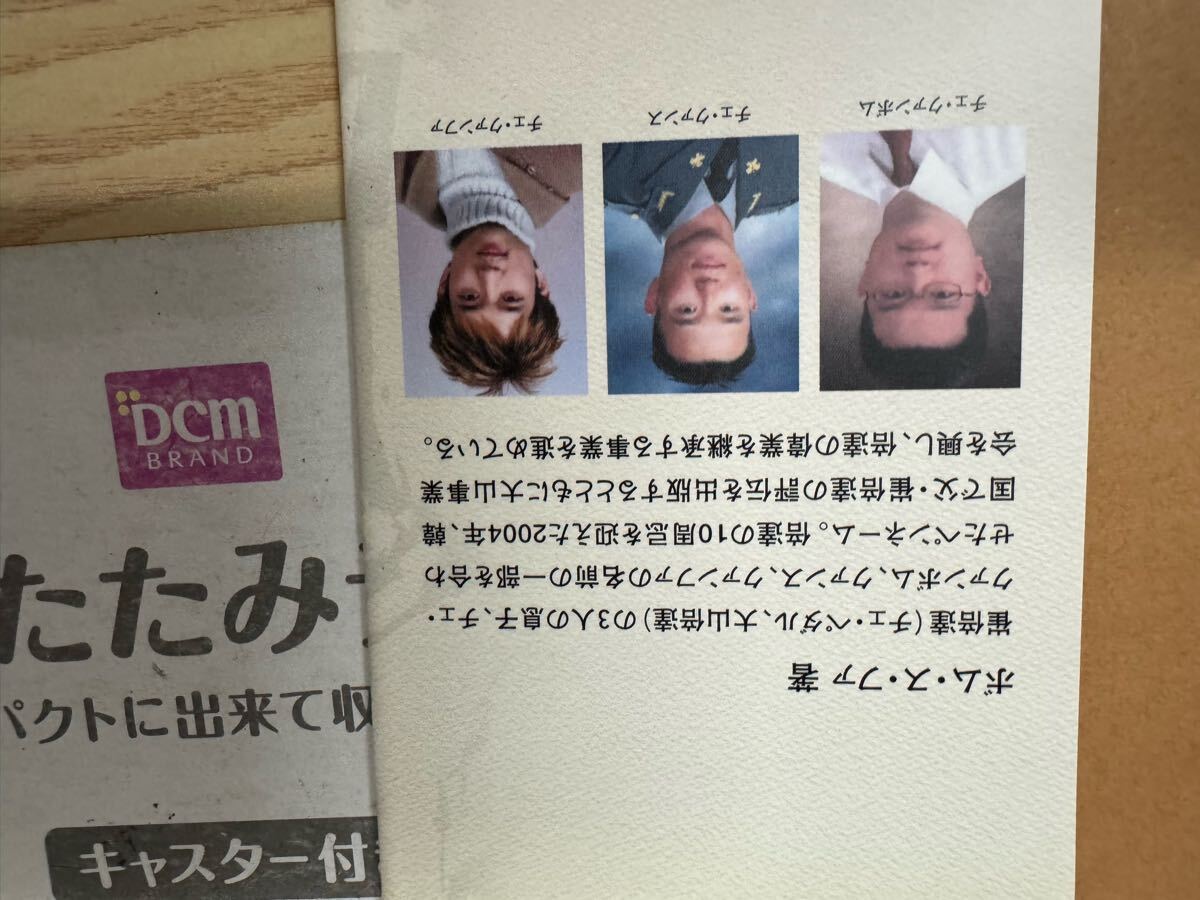 ボム・ス・ファ 著
崔倍達(チェ・ペダル、大山倍達)の3人の息子、チェ・
クァンボム、クァンス、クァンファの名前の一部を合わ
せたペンネーム。倍達の10周忌を迎えた2004年、韓
国で父・崔倍達の評伝を出版するとともに大山事業
会を興し、倍達の偉業を継承する事業を進めている。
チェ・クァンボム
チェ・クァンス
チェ・クァンファ
DCM
BRAND
たたみ
パクトに出来て収
キャスター付